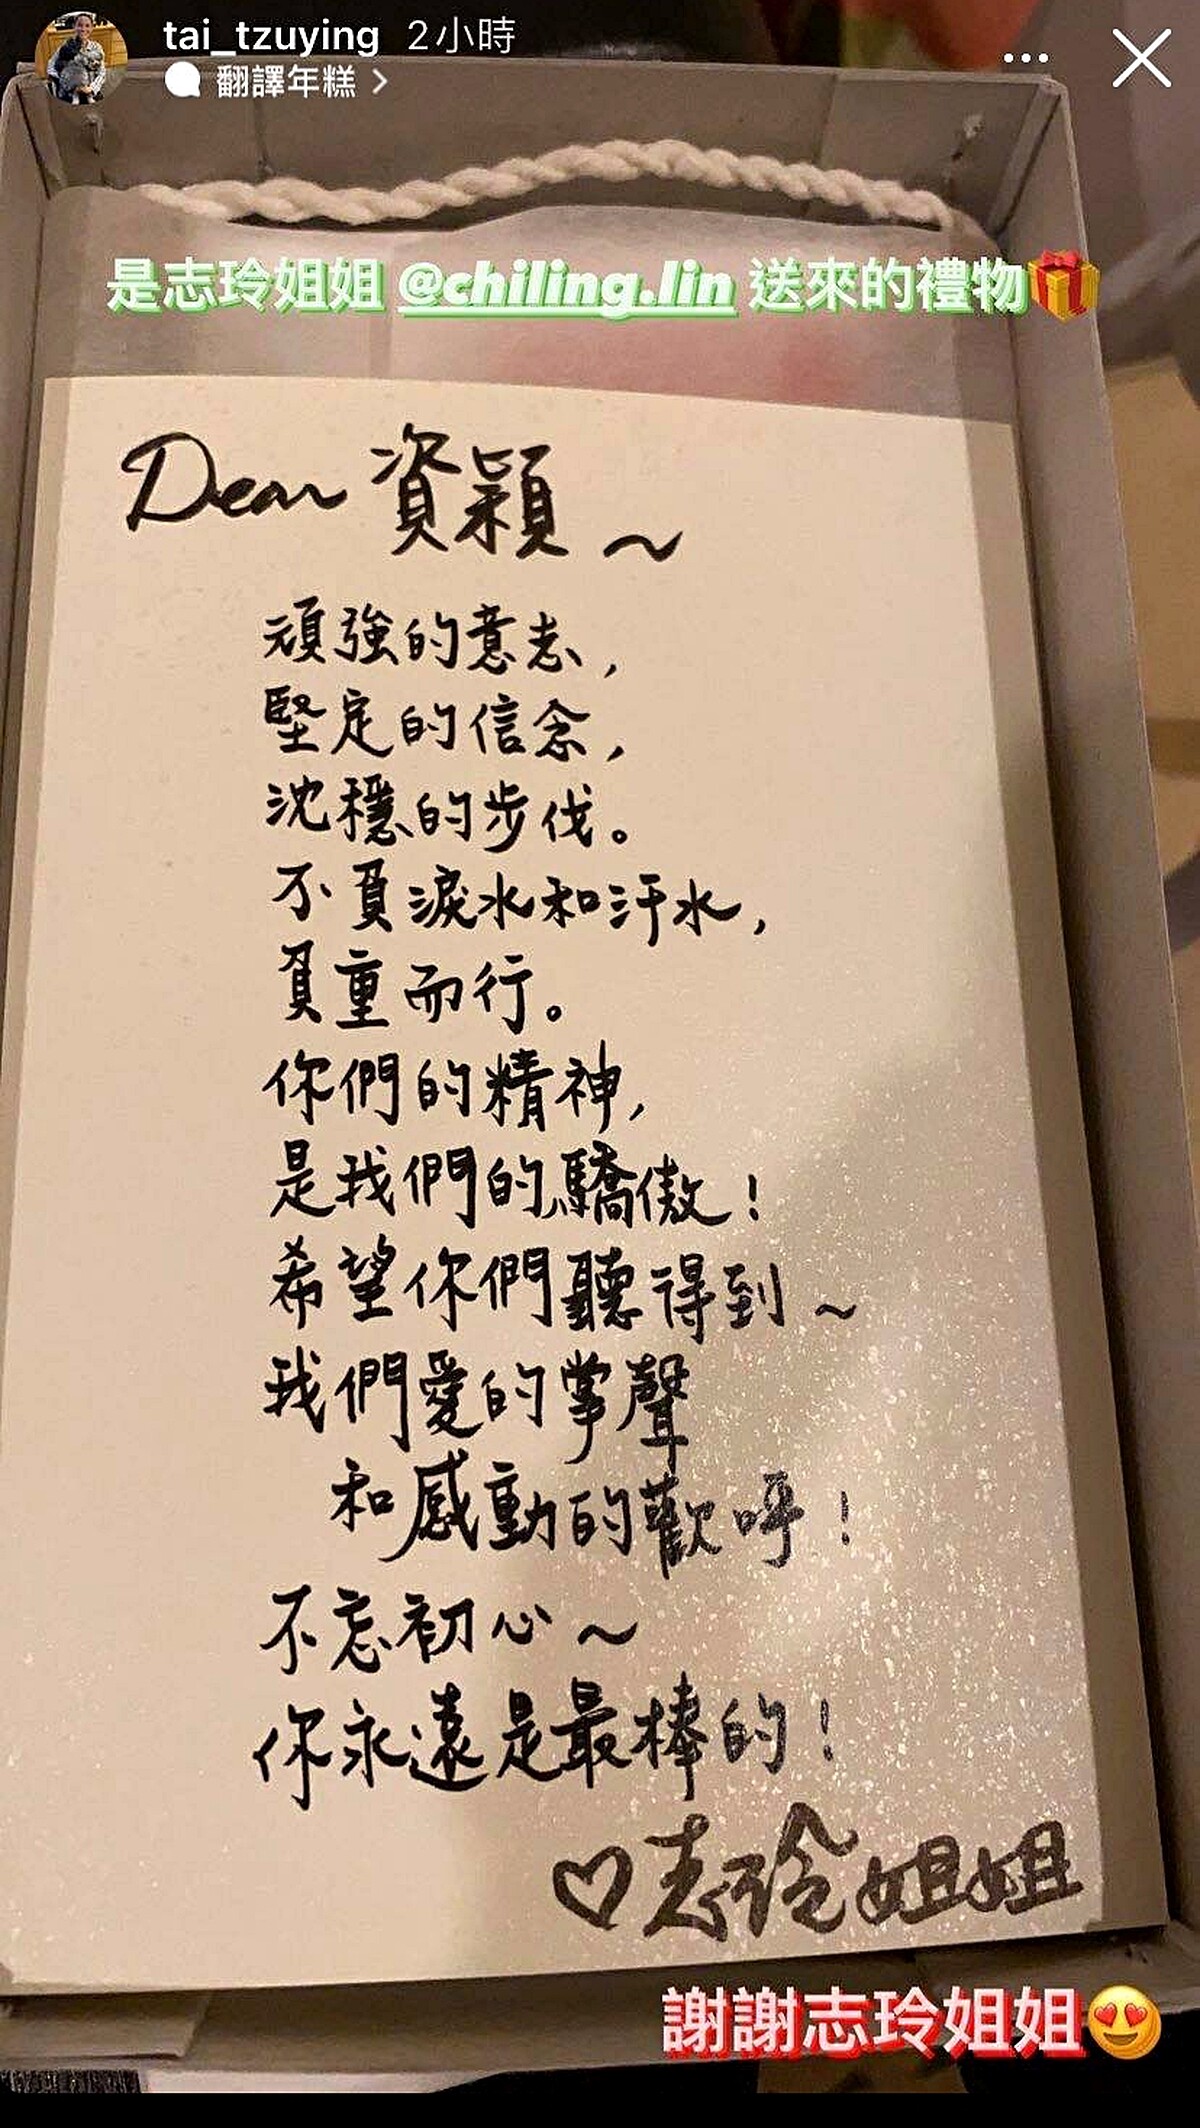 tai_tzuying 2小時
翻譯年糕 >
是志玲姐姐 @chiling.lin 送來的禮物🎁
Dear 資穎~
頑強的意志,
堅定的信念,
沈穩的步伐。
不負淚水和汗水,
負重而行。
你們的精神,
是我們的驕傲!
希望你們聽得到~
我們愛的掌聲
和感動的歡呼!
不忘初心~
你永遠是最棒的!
♡志玲姐姐
謝謝志玲姐姐😍